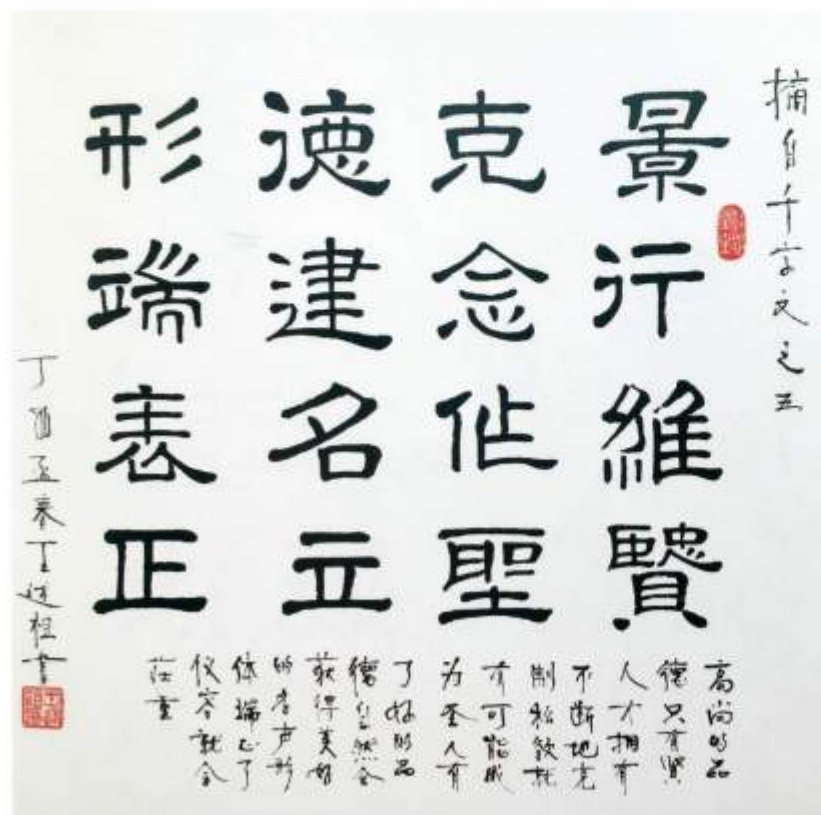 摘自千字文之五
景行維賢
克念作聖
德建名立
形端表正
高尚的品
德只有贤
人才拥有
不断地克
制私欲就
才可能成
为圣人有
了好的品
德自然会
获得美好
的名声形
体端正了
仪容就会
庄重
丁酉孟春王